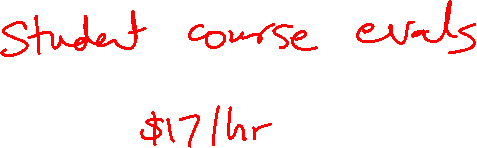 Student course evals
$17/hr